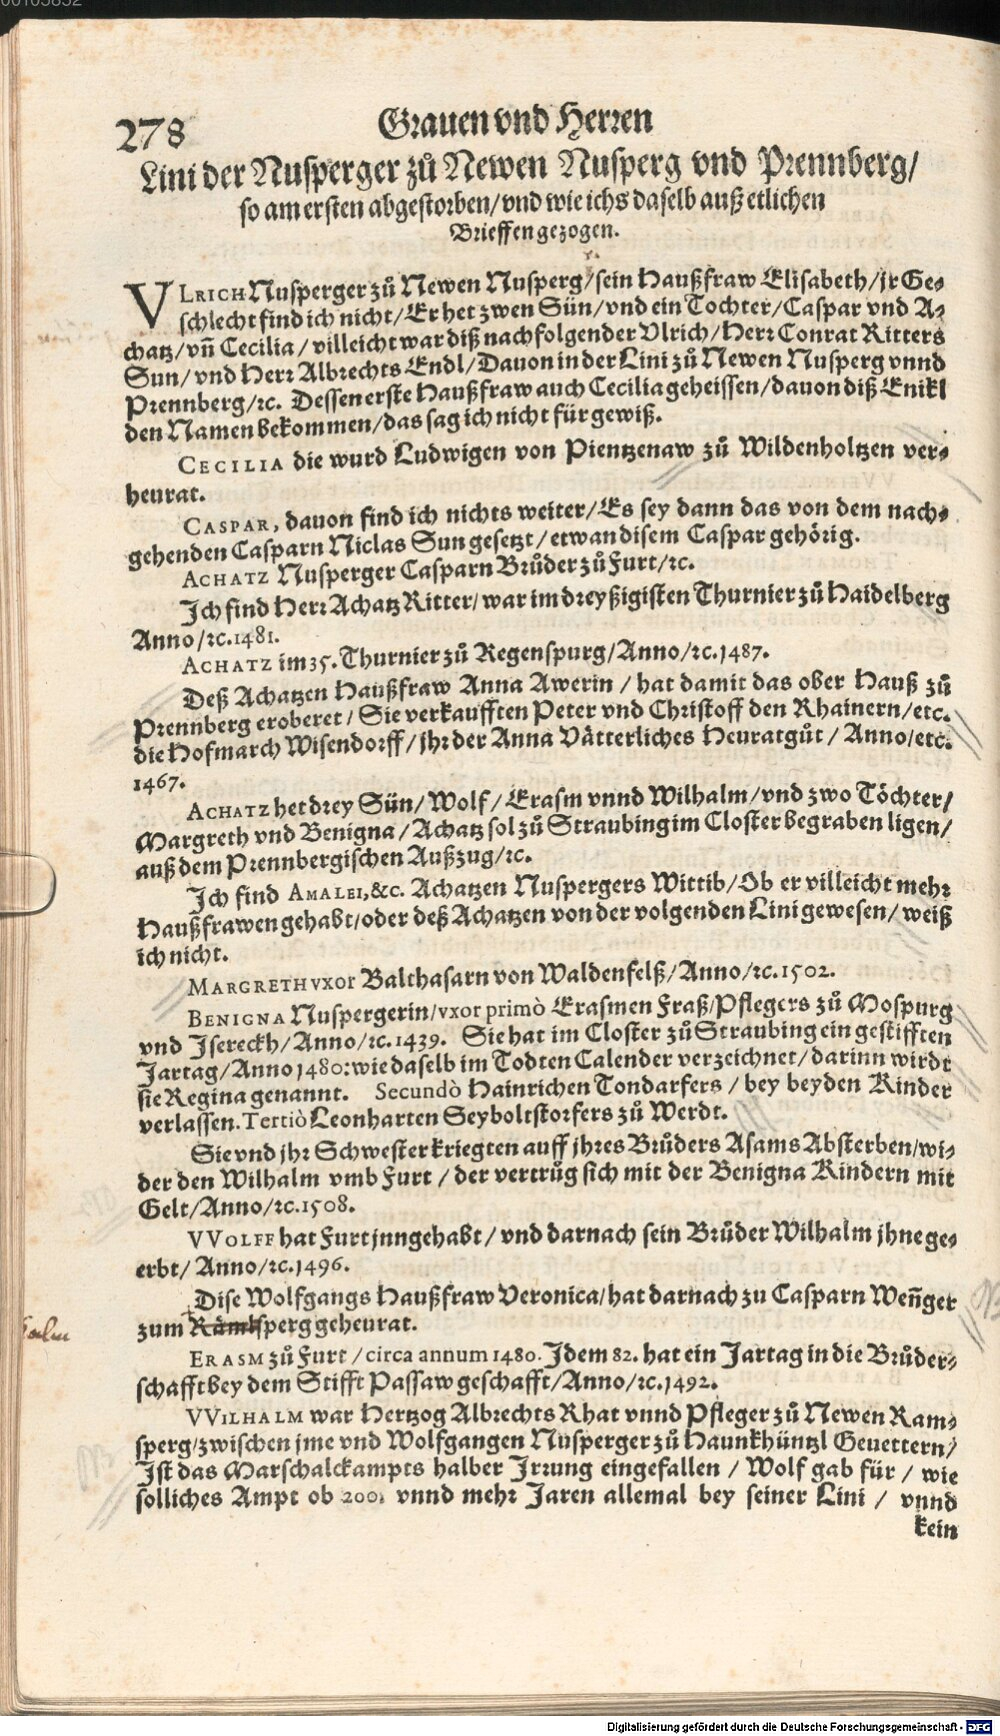 00103832
278
Grauen vnd Herren
Lini der Nusperger zů Newen Nusperg vnd Prennberg/
so am ersten abgestorben/ vnd wie ichs daselb auß etlichen
Brieffen gezogen.
VLRICH Nusperger zů Newen Nusperg/ sein Haußfraw Elisabeth/ jr Ge-
schlecht find ich nicht/ Er het zwen Sün/ vnd ein Tochter/ Caspar vnd A-
chatz/ vn̄ Cecilia/ villeicht war diß nachfolgender Vlrich/ Herr Conrat Ritters
Sun/ vnd Herr Albrechts Endl/ Dauon in der Lini zů Newen Nusperg vnnd
Prennberg/ ꝛc. Dessen erste Haußfraw auch Cecilia geheissen/ dauon diß Enikl
den Namen bekommen/ das sag ich nicht für gewiß.
CECILIA die wurd Ludwigen von Pientzenaw zů Wildenholtzen ver-
heurat.
CASPAR, dauon find ich nichts weiter/ Es sey dann das von dem nach-
gehenden Casparn Niclas Sun gesetzt/ etwan disem Caspar gehörig.
ACHATZ Nusperger Casparn Brůder zů Furt/ ꝛc.
Ich find Herr Achatz Ritter/ war im dreyßigisten Thurnier zů Haidelberg
Anno/ ꝛc. 1481.
ACHATZ im 35. Thurnier zů Regenspurg/ Anno/ ꝛc. 1487.
Deß Achatzen Haußfraw Anna Awerin/ hat damit das ober Hauß zů
Prennberg eroberet/ Sie verkaufften Peter vnd Christoff den Rhainern/ etc.
die Hofmarch Wisendorff/ jhr der Anna Vätterliches Heuratgůt/ Anno/ etc.
1467.
ACHATZ het drey Sün/ Wolf/ Erasm vnnd Wilhalm/ vnd zwo Töchter/
Margreth vnd Benigna/ Achatz sol zů Straubing im Closter begraben ligen/
auß dem Prennbergischen Außzug/ ꝛc.
Ich find AMALEI, &c. Achatzen Nuspergers Wittib/ Ob er villeicht mehr
Haußfrawen gehabt/ oder deß Achatzen von der volgenden Lini gewesen/ weiß
ich nicht.
MARGRETH vxor Balthasarn von Waldenfelß/ Anno/ ꝛc. 1502.
BENIGNA Nuspergerin/ vxor primò Erasmen Fraß/ Pflegers zů Mospurg
vnd Isereckh/ Anno/ ꝛc. 1439. Sie hat im Closter zů Straubing ein gestifften
Jartag/ Anno 1480: wie daselb im Todten Calender verzeichnet/ darinn wirdt
sie Regina genannt. Secundò Hainrichen Tondarfers/ bey beyden Kinder
verlassen. Tertiò Leonharten Seyboltstorfers zů Werdt.
Sie vnd jhr Schwester kriegten auff jhres Brůders Asams Absterben/ wi-
der den Wilhalm vmb Furt/ der vertrůg sich mit der Benigna Kindern mit
Gelt/ Anno/ ꝛc. 1508.
VVOLFF hat Furt jnngehabt/ vnd darnach sein Brůder Wilhalm jhne ge-
erbt/ Anno/ ꝛc. 1496.
Dise Wolfgangs Haußfraw Veronica/ hat darnach zu Casparn Wen̄ger
zum Rämlsperg geheurat.
ERASM zů Furt/ circa annum 1480. Idem 82. hat ein Jartag in die Brůder-
schafft bey dem Stifft Passaw geschafft/ Anno/ ꝛc. 1492.
VVILHALM war Hertzog Albrechts Rhat vnnd Pfleger zů Newen Ram-
sperg/ zwischen jme vnd Wolfgangen Nusperger zů Haunkhüntzl Geuettern/
Ist das Marschalckampts halber Irrung eingefallen/ Wolf gab für/ wie
solliches Ampt ob 200. vnnd mehr Jaren allemal bey seiner Lini/ vnnd
kein
Digitalisierung gefördert durch die Deutsche Forschungsgemeinschaft - DFG